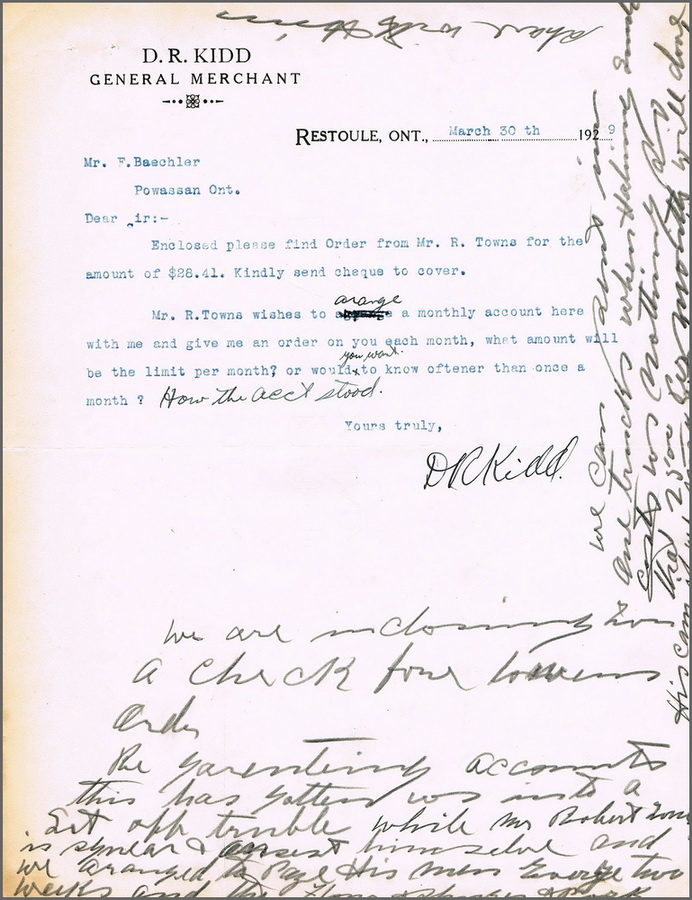 D. R. KIDD
GENERAL MERCHANT
RESTOULE, ONT., March 30 th 1929
Mr. F.Baechler
Powassan Ont.
Dear ir:-
Enclosed please find Order from Mr. R. Towns for the
amount of $28.41. Kindly send cheque to cover.
arange
Mr. R.Towns wishes to a monthly account here
with me and give me an order on you each month, what amount will
you want
be the limit per month? or would to know oftener than once a
month ? How the acct stood.
Yours truly,
D R Kidd.
we are inclosing you
a check for towns
Order
Re garenteing accounts
this has gotten us into a
lot off trouble while Mr Robert Towns
is square & himselve and
we aranged to Paye His men Everye two
weeks and the
we can send in
one trucks when Halming
costs us nothing
that 25¢ will
His
share with Him